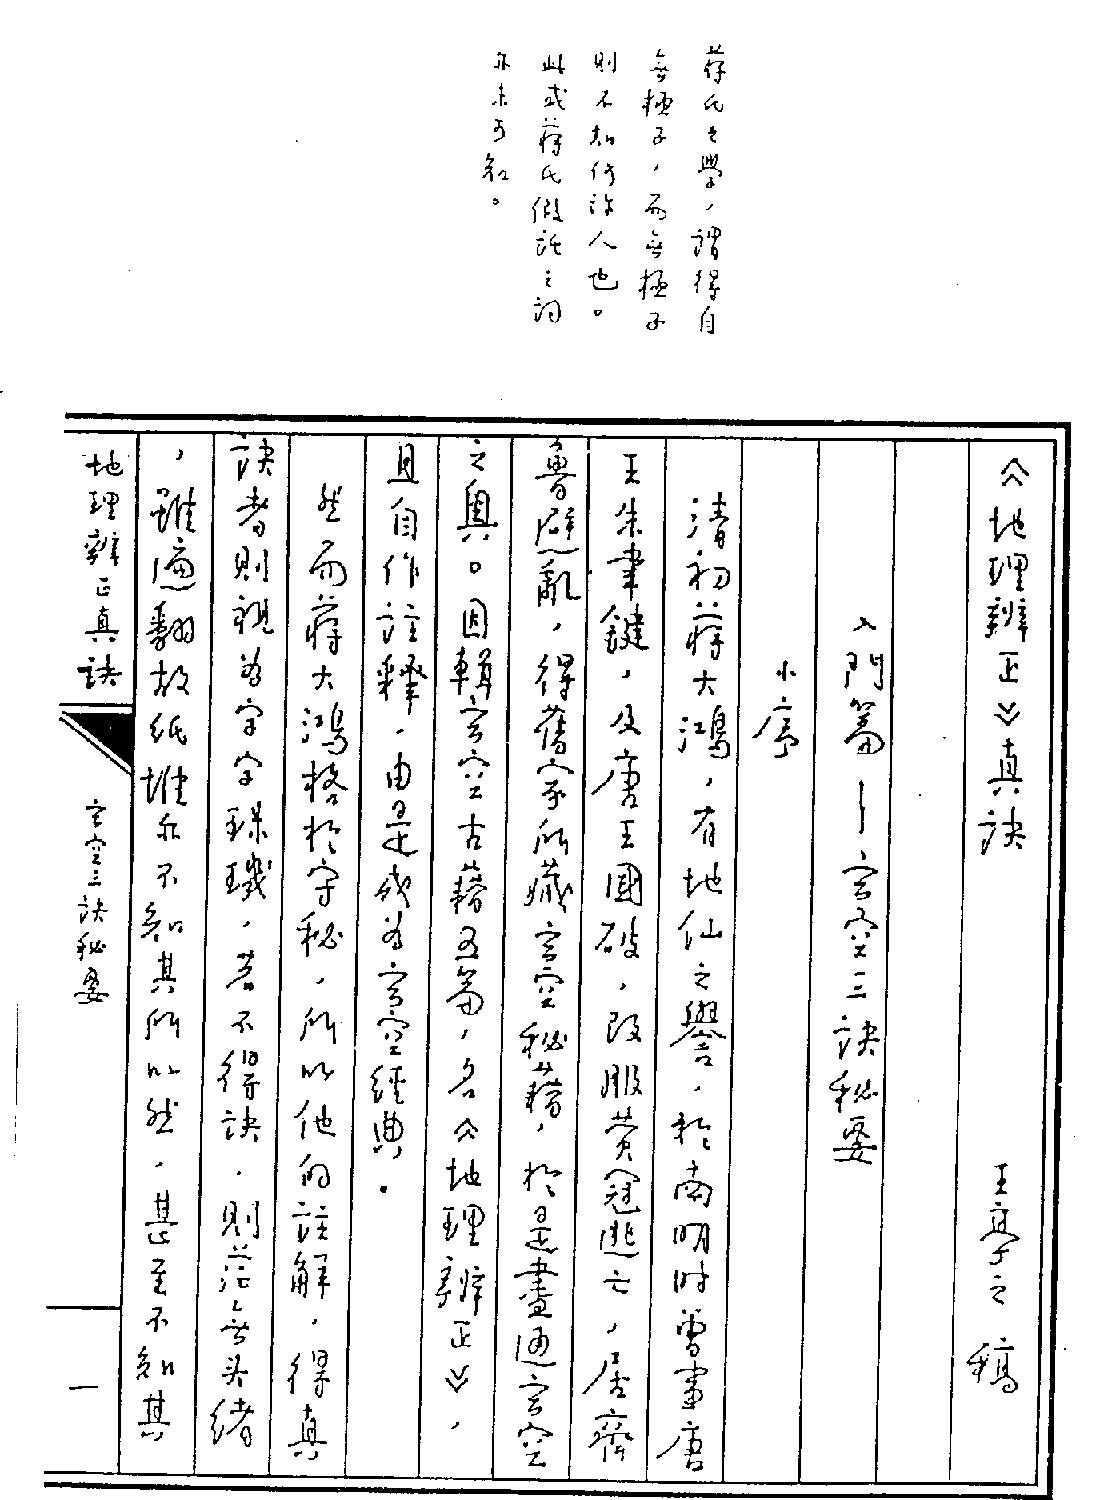 蔣氏之學，謂得自
無極子，而無極子
則不知何許人也。
此或蔣氏假託之詞
亦未可知。
《地理辨正》真訣
王亭之 稿
入門篇—玄空三訣秘要
小序
清初蔣大鴻，有地仙之譽，於南明時曾事唐
王朱聿鍵，及唐王國破，改服黃冠逃亡，居齊
魯避亂，得舊家所藏玄空秘籍，於是盡通玄空
之奧。因輯玄空古籍五篇，名《地理辨正》，
且自作註釋，由是成為玄空經典。
然而蔣大鴻格於守秘，所以他的註解，得真
訣者則視為字字珠璣，若不得訣，則茫無头緒
，雖遍翻故紙堆亦不知其所以然，甚至不知其
地理辨正真訣
玄空三訣秘要
一